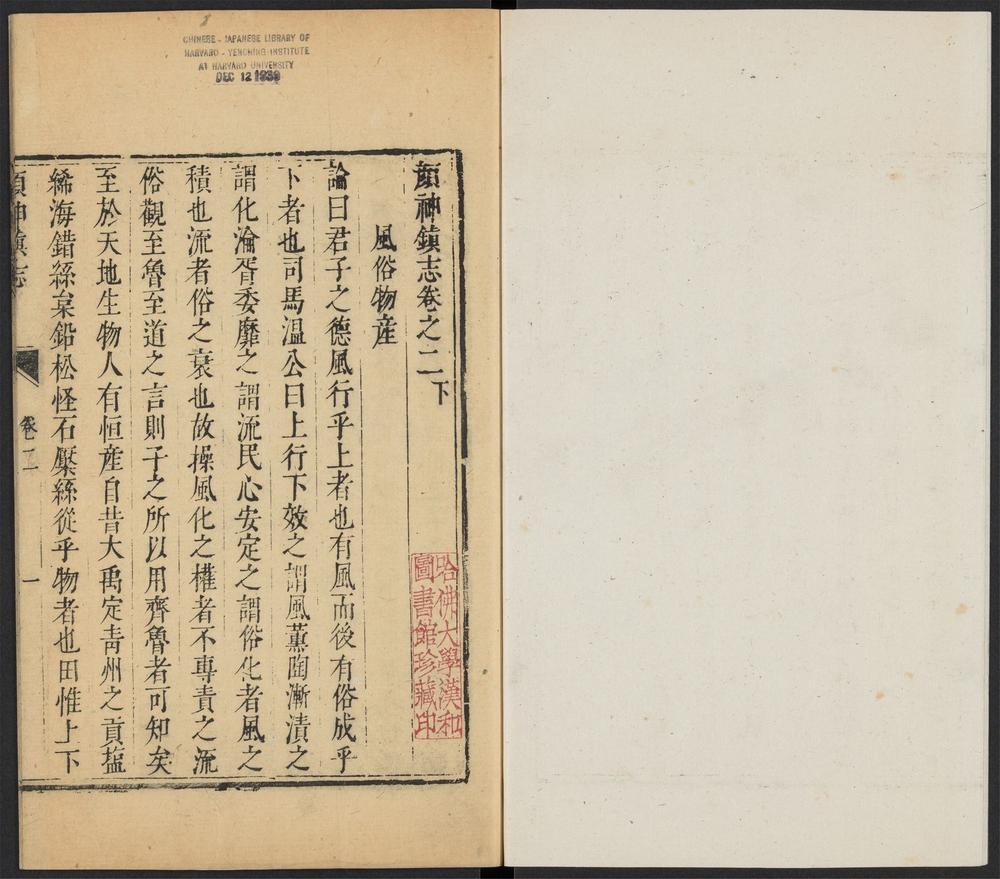 CHINESE - JAPANESE LIBRARY OF
HARVARD - YENCHING INSTITUTE
AT HARVARD UNIVERSITY
DEC 12 1939
顏神鎮志卷之二下
風俗物産
論曰君子之德風行乎上者也有風而後有俗成乎
下者也司馬温公曰上行下效之謂風薫陶漸漬之
謂化淪胥委靡之謂流民心安定之謂俗化者風之
積也流者俗之衰也故操風化之權者不專責之流
俗觀至魯至道之言則子之所以用齊魯者可知矣
至於天地生物人有恒産自昔大禹定青州之貢塩
絺海錯絲枲鉛松怪石檿絲從乎物者也田惟上下
顏神鎮志
卷二
一
哈佛大學漢和
圖書館珍藏印